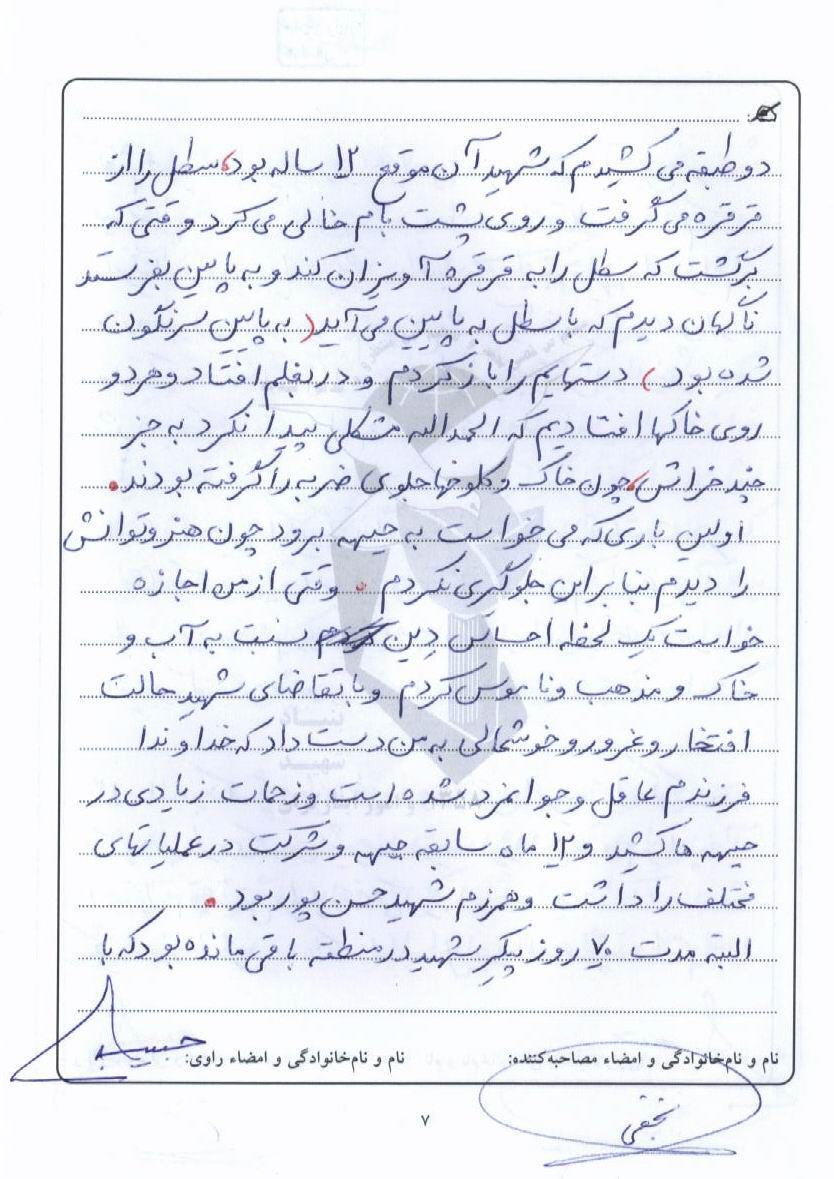 دو طبقه می کشیدم که شهید آن موقع ۱۲ ساله بود، سطل را از
قرقره می گرفت و روی پشت بام خالی می کرد وقتی که
برگشت که سطل را به قرقره آویزان کند و به پایین بفرستد
ناگهان دیدم که با سطل به پایین می آید (به پایین سرنگون
شده بود) دستهایم را باز کردم و در بغلم افتاد و هر دو
روی خاکها افتادیم که الحمدالله مشکلی پیدا نکرد به جز
چند خراش، چون خاک و کلوخها جلوی ضربه را گرفته بودند.
اولین باری که می خواست به جبهه برود چون هنر و توانش
را دیدم بنابراین جلوگیری نکردم. وقتی از من اجازه
خواست یک لحظه احساس دین نسبت به آب و
خاک و مذهب و ناموس کردم و با تقاضای شهید حالت
افتخار و غرور و خوشحالی به من دست داد که خداوندا
فرزندم عاقل و جوانمرد شده است و زحمات زیادی در
جبهه ها کشید و ۱۲ ماه سابقه جبهه و شرکت در عملیاتهای
مختلف را داشت و همرزم شهید حسن پور بود.
البته مدت ۷۰ روز پیکر شهید در منطقه باقی مانده بود که با
نام و نام‌خانوادگی و امضاء مصاحبه‌کننده: نام و نام‌خانوادگی و امضاء راوی:
نجفی
۷
بنیاد
شهید